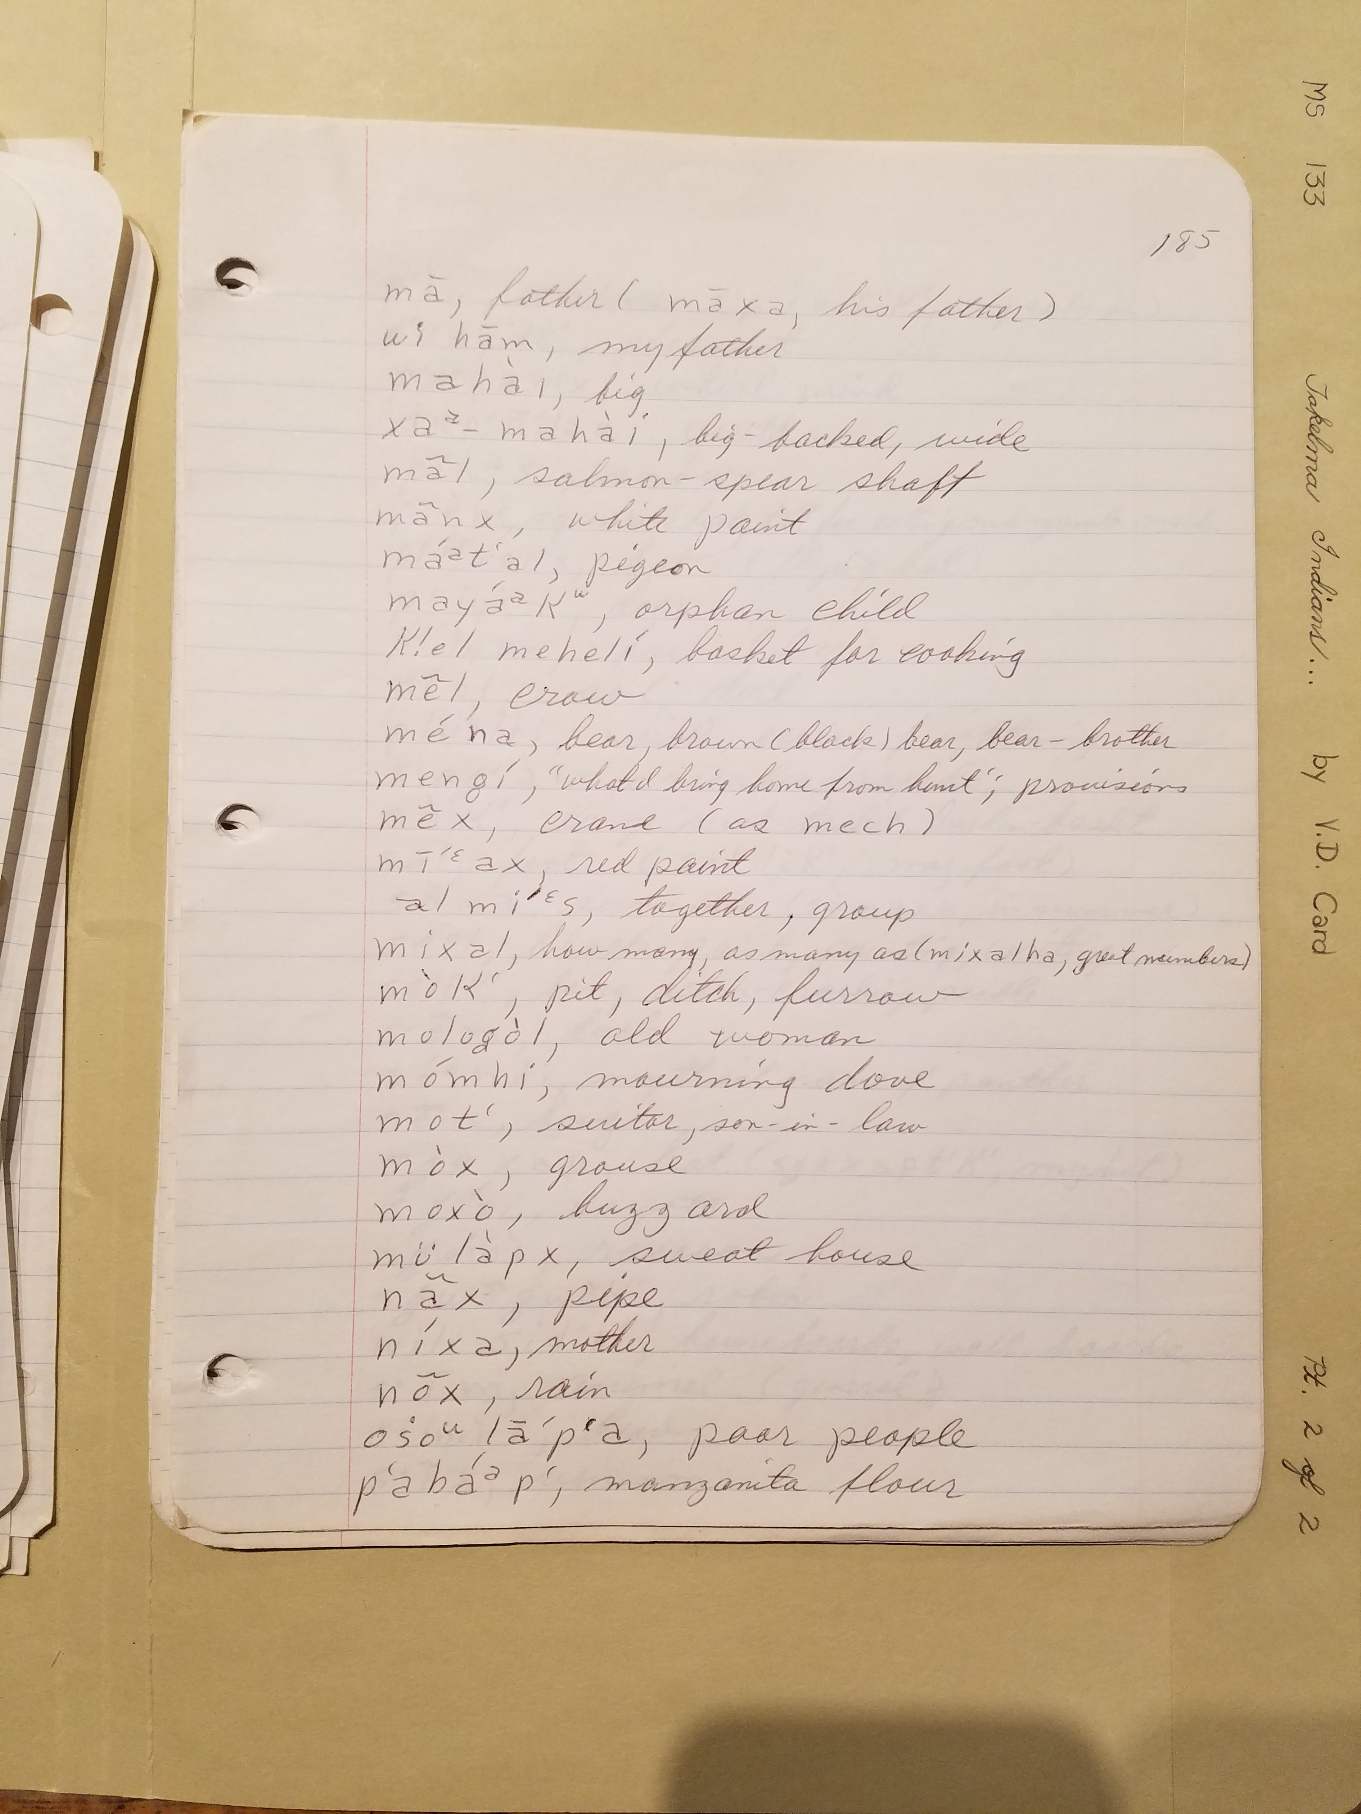 185
mā, father ( māxa, his father)
wi hām, my father
mahàı, big
xaᵃ- mahàí, big-backed, wide
mā̃l, salmon-spear shaft
mā̃nx, white paint
máᵃt'al, pigeon
mayáᵃKʷ, orphan child
K!el mehelí, basket for cooking
mẽl, crow
ména, bear, brown (black) bear, bear-brother
mengí, "what'd bring home from hunt"; provisions
mẽx, crane (as mech)
mī'ᵋax, red paint
al mi'ᵋs, together, group
mixal, how many, as many as (mixalha, great numbers)
mòK', pit, ditch, furrow
mologòl, old woman
mómhi, mourning dove
mot', suitor, son-in-law
mòx, grouse
moxò, buzzard
mülàpx, sweat house
nā̃x, pipe
níxa, mother
nõx, rain
oṡoᵘ lā'p'a, poor people
p'abáᵃp', manzanita flour
MS 133 Takelma Indians... by V.D. Card Pt. 2 of 2